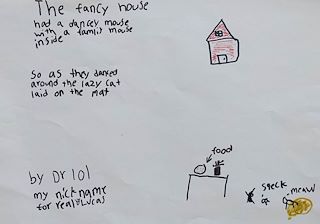 The fancy house
had a dancey mouse
with a famlis mouse
inside
So as they danked
around the lazy cat
laid on the mat
food
by Dr lol
my nick name
for real Lucas
speck
meaw